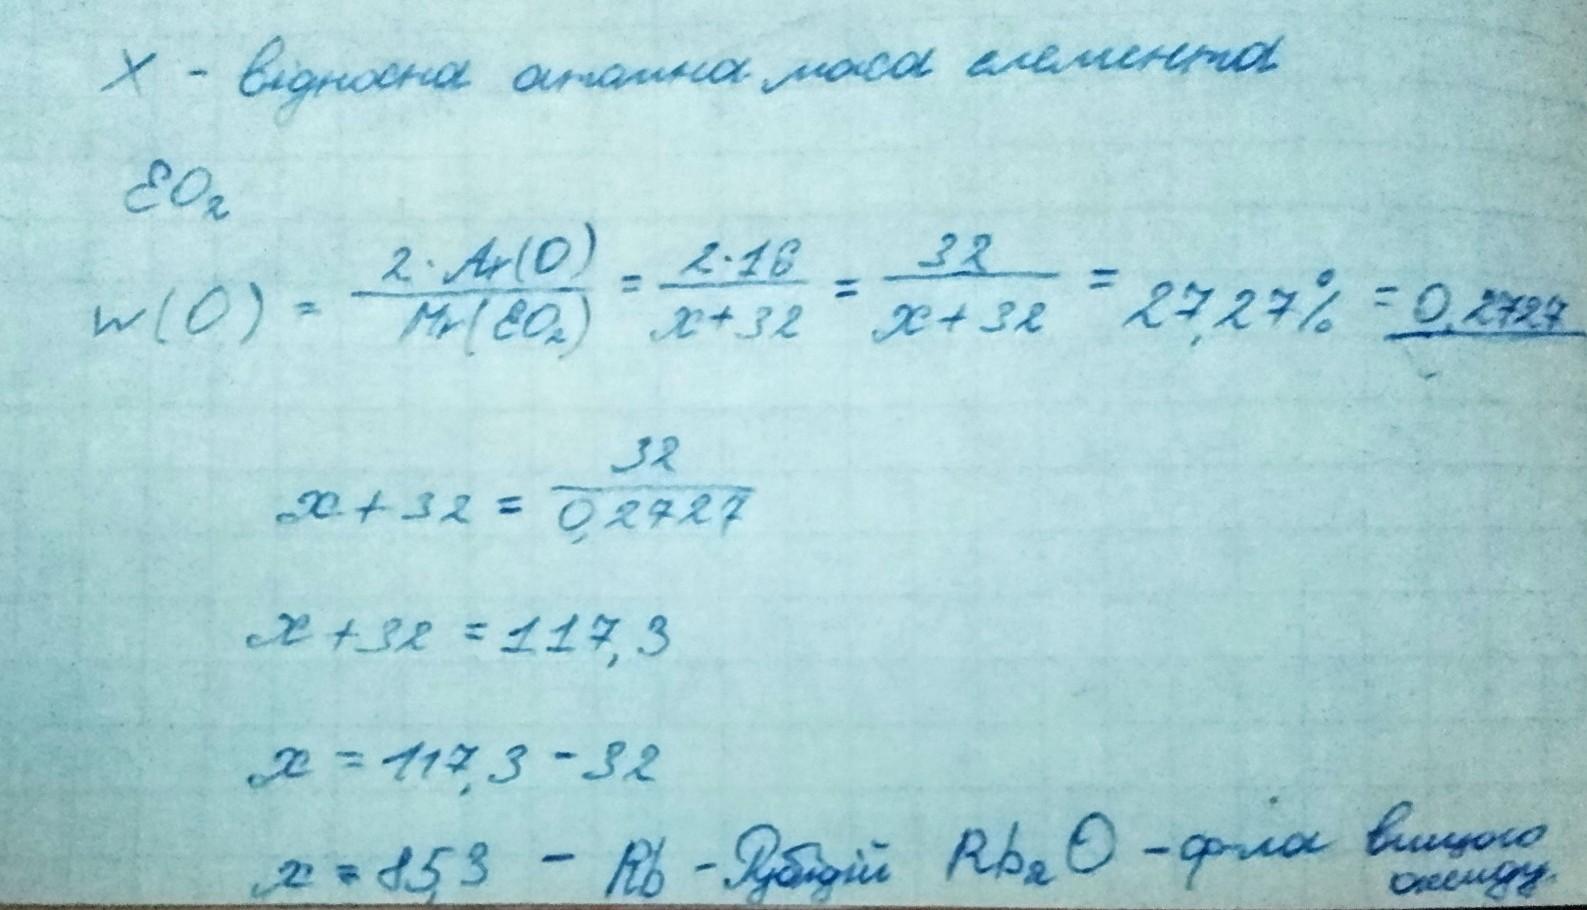 X - відносна атомна маса елемента
EO₂
w(O) = 2·Ar(O) / Mr(EO₂) = 2·16 / x+32 = 32 / x+32 = 27,27% = 0,2727
x+32 = 32 / 0,2727
x+32 = 117,3
x = 117,3 - 32
x = 85,3 - Rb - Рубідій Rb₂O - ф-ла вищого оксиду.